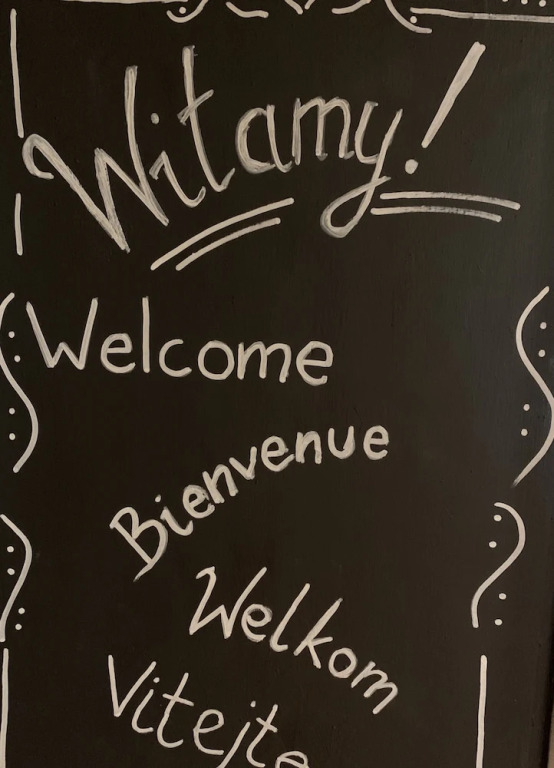 Witamy!
Welcome
Bienvenue
Welkom
Vitejte